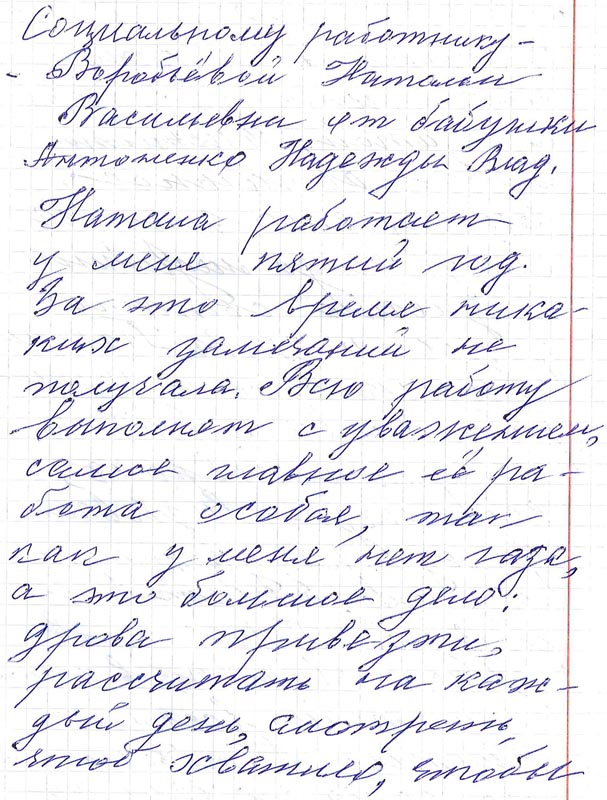 Социальному работнику -
- Воробьёвой Наталье
Васильевни от бабушки
Антоненко Надежды Влад.
Натала работает
у меня пятый год.
За это время ника-
ких замечаний не
получала. Всю работу
выполняет с уважением,
самое главное её ра-
бота особая, так
как у меня нет газа,
а это большое дело:
дрова привезти,
рассчитать на каж-
дый день, смотреть,
чтоб хватило, чтобы